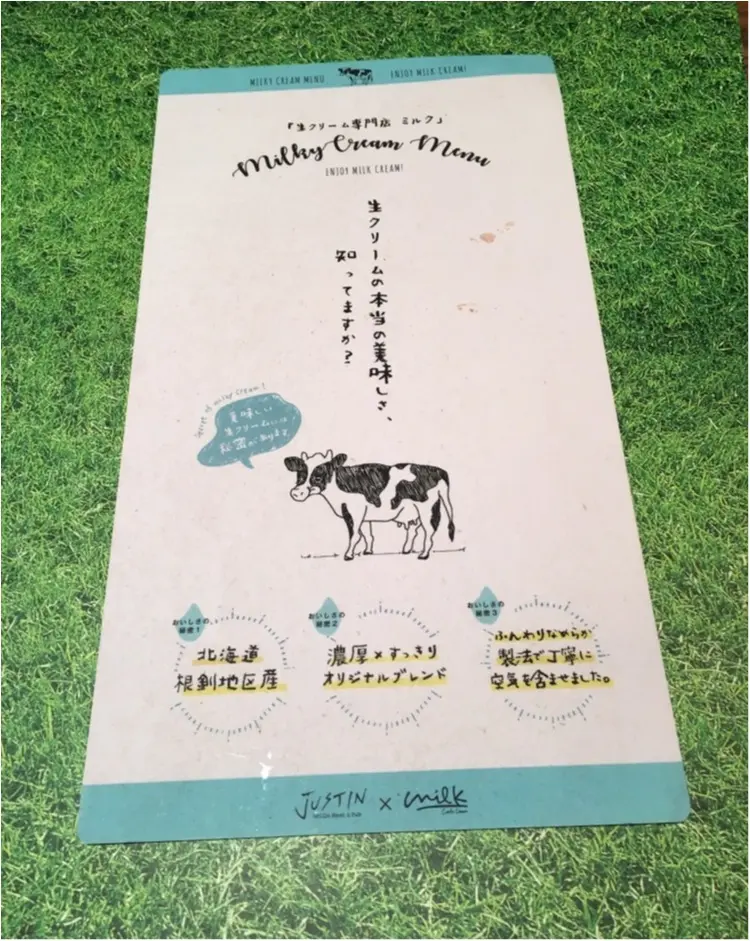 MILKY CREAM MENU
ENJOY MILK CREAM!
「生クリーム専門店 ミルク」
Milky Cream Menu
ENJOY MILK CREAM!
生クリームの本当の美味しさ、
知ってますか?
Secret of milky cream!
美味しい
生クリームには
秘密があります
おいしさの
秘密1
北海道
根釧地区産
おいしさの
秘密2
濃厚×すっきり
オリジナルブレンド
おいしさの
秘密3
ふんわりなめらか
製法で丁寧に
空気を含ませました。
JUSTIN × milk